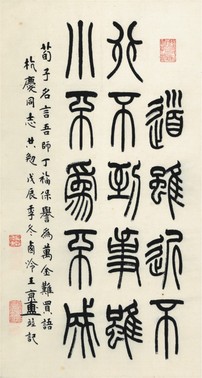 道雖近不
行不到事雖
小不為不成
荀子名言吾師丁福保譽為萬金難買語
杭慶同志共勉戊辰季冬西泠王京盙並記